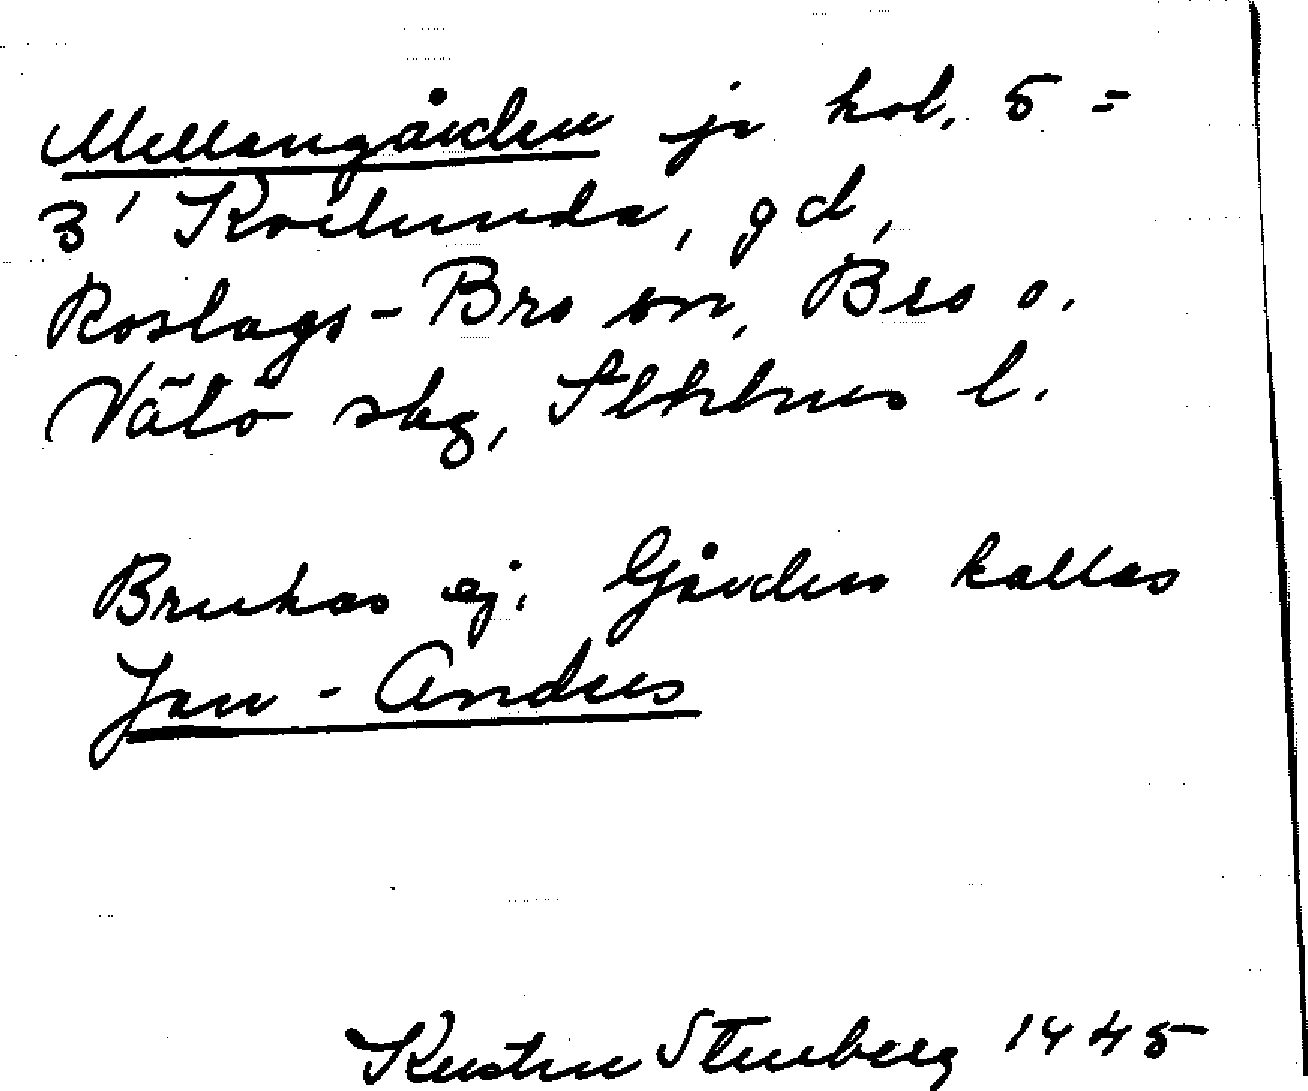 Mellangården jr kol. 5 =
3' gd,
Roslags-Bro sn, Bro o.
Vätö skg, Sthlms l.
Brukas ej. Gården kallas
Jan-Anders
Kerstin Stenberg 1945